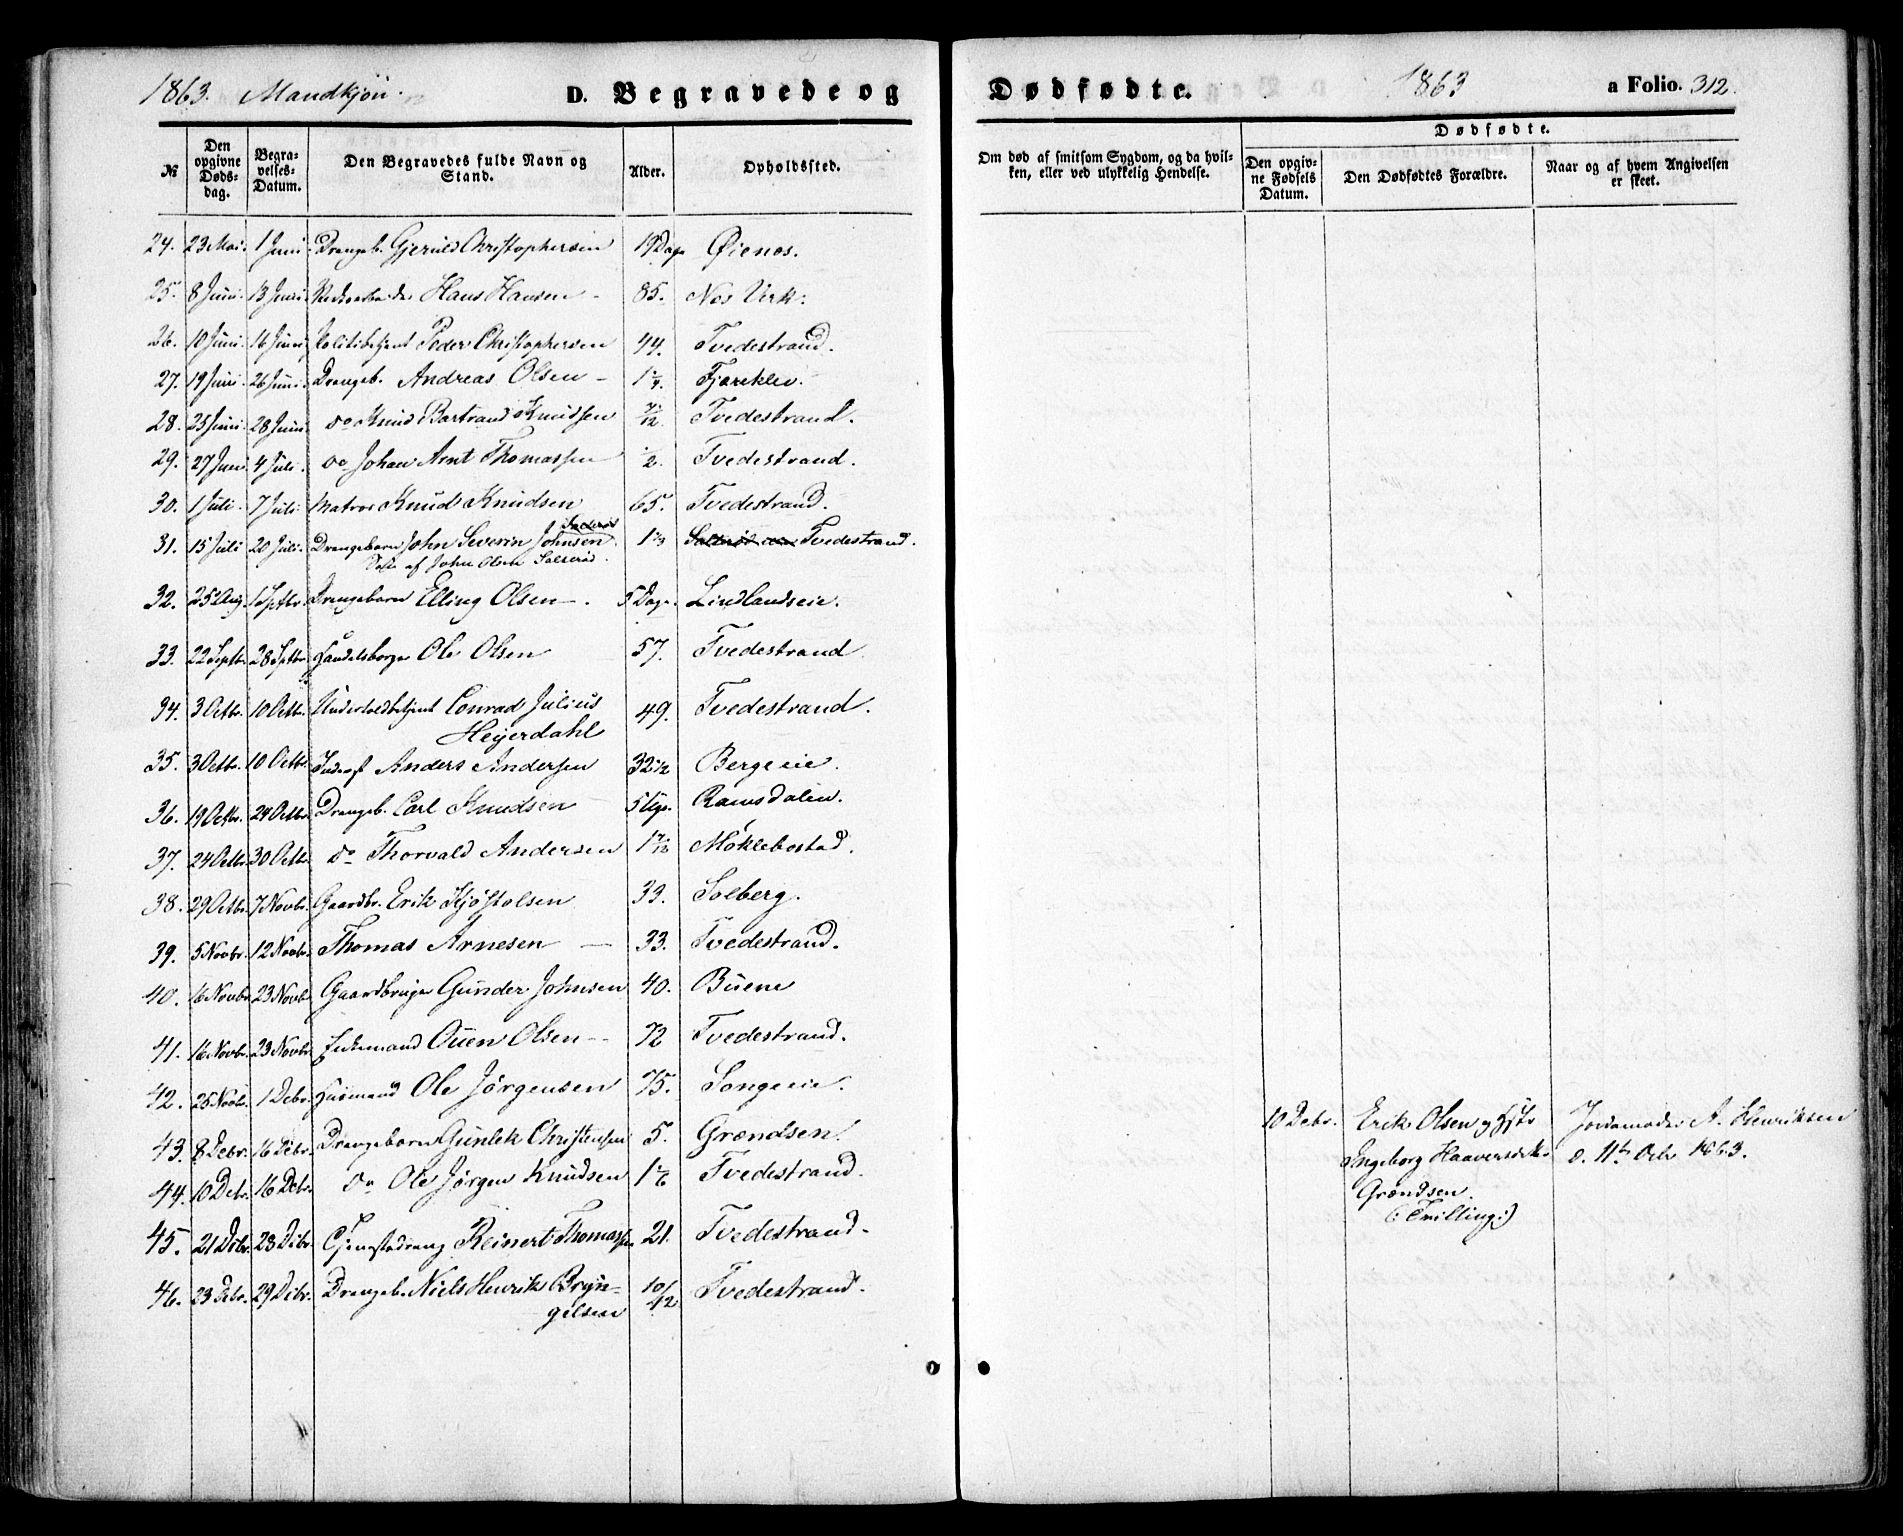 1863. Mandkjön. D. Begravede og Dødfødte. 1863 a Folio. 312.
№ Den opgivne Døds-dag. Begra-velses-Datum. Den Begravedes fulde Navn og Stand. Alder. Opholdssted. Om død af smitsom Sygdom, og da hvil-ken, eller ved ulykkelig Hendelse. Dødfødte. Den opgiv-ne Fødsels Datum. Den Dødfødtes Forældre. Naar og af hvem Angivelsen er skeet.
24. 23 Mai. 1 Juni Drengeb. Gjeruld Christophersen 19 Dage Øienes.
25. 8 Juni. 13 Juni. Hans Hansen - 85. Nes Verk.
26. 10 Juni. 16 Juni Politibetjent Peder Christophersen 44. Tvedestrand.
27. 19 Juni 26 Juni. Drengeb. Andreas Olsen - 1 1/4. Fjæreklev.
28. 25 Juni. 28 Juni. do Knud Bertrand Knudsen 7/12 Tvedestrand.
29. 27 Juni 4 Juli. do Johan Arnt Thomassen 1/2. Tvedestrand.
30. 1 Juli. 7 Juli. Matros Knud Knudsen 65. Tvedestrand.
31. 15 Juli 20 Juli. Drengebarn John Severin Johnsen 1 2/3 Tvedestrand.
af John Olsen Salterød.
32. 25 Aug. 1 Septbr. Drengebarn Elling Olsen - . 5 Dage. Lindlandseie.
33. 22 Septbr. 28 Septbr Handelsborger Ole Olsen 57. Tvedestrand
34. 3 Octbr. 10 Octbr. Conrad Julius 49. Tvedestrand.
Heyerdahl
35. 3 Octbr. 10 Octbr. Inderst Anders Andersen 32 1/2 Bergeeie.
36. 19 Octbr. 24 Octbr. Drengeb. Carl Knudsen 5 Uger. Ramsdalen.
37. 24 Octbr. 30 Octbr. do Thorvald Andersen 1 7/12 Møklebostad.
38. 29 Octbr. 7 Novbr. Gaardbr. Erik Kjøstolsen 33. Solberg.
39. 5 Novbr. 12 Novbr. Thomas Arnesen - 33. Tvedestrand.
40. 16 Novbr. 23 Novbr. Gaardbruger Gunder Johnsen 40. Buene
41. 16 Novbr. 23 Novbr. Ouen Olsen - 72 Tvedestrand.
42. 25 Novbr. 1 Debr. Huusmand Ole Jörgensen 75. Songeeie.
43. 8 Debr. 16 Debr. Drengebarn Gunlek Christensen 5. Grændsen. 10 Debr. Erik Olsen og Hustr Jordemoder A. Henriksen
Ingeborg Haaversdtr. d. 11te Debr 1863.
44. 10 Debr. 16 Debr. do Ole Jørgen Knudsen 1 1/6 Tvedestrand. Grændsen.
(: Tvilling :)
45. 21 Debr. 28 Debr. Tjenestedreng Reinert Thomassen 21. Tvedestrand.
46. 23 Debr. 29 Debr. Drengeb. Niels Henrik Bryn= 10/12 Tvedestrand.
gelsen